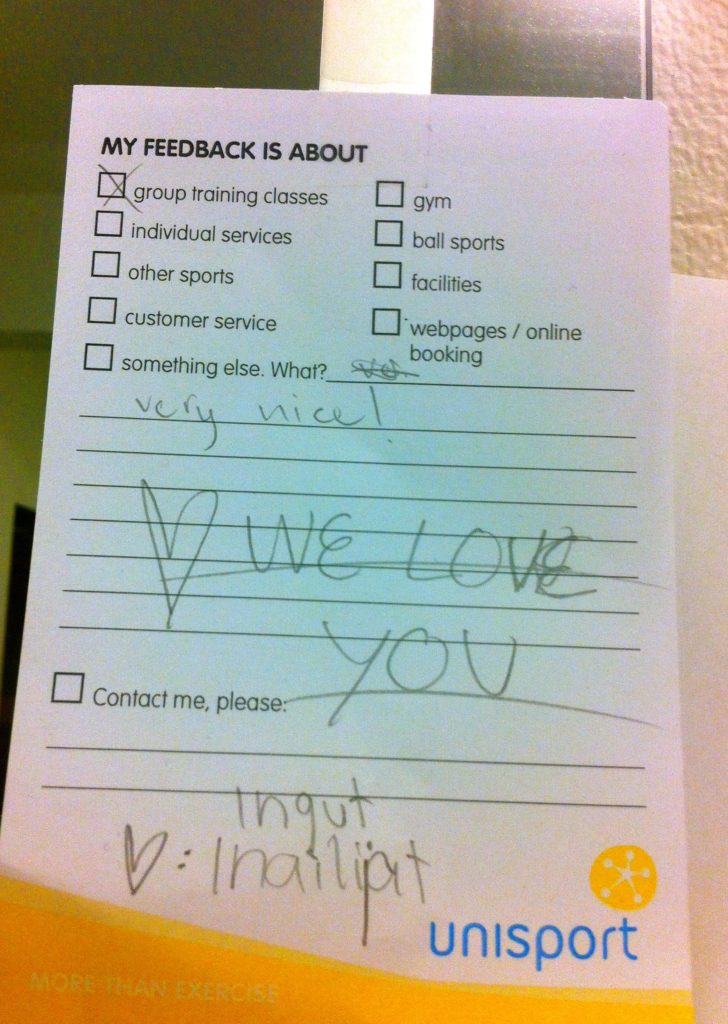 MY FEEDBACK IS ABOUT
group training classes
gym
individual services
ball sports
other sports
facilities
customer service
webpages / online
booking
something else. What?
very nice!
WE LOVE
YOU
Contact me, please:
unisport
MORE THAN EXERCISE